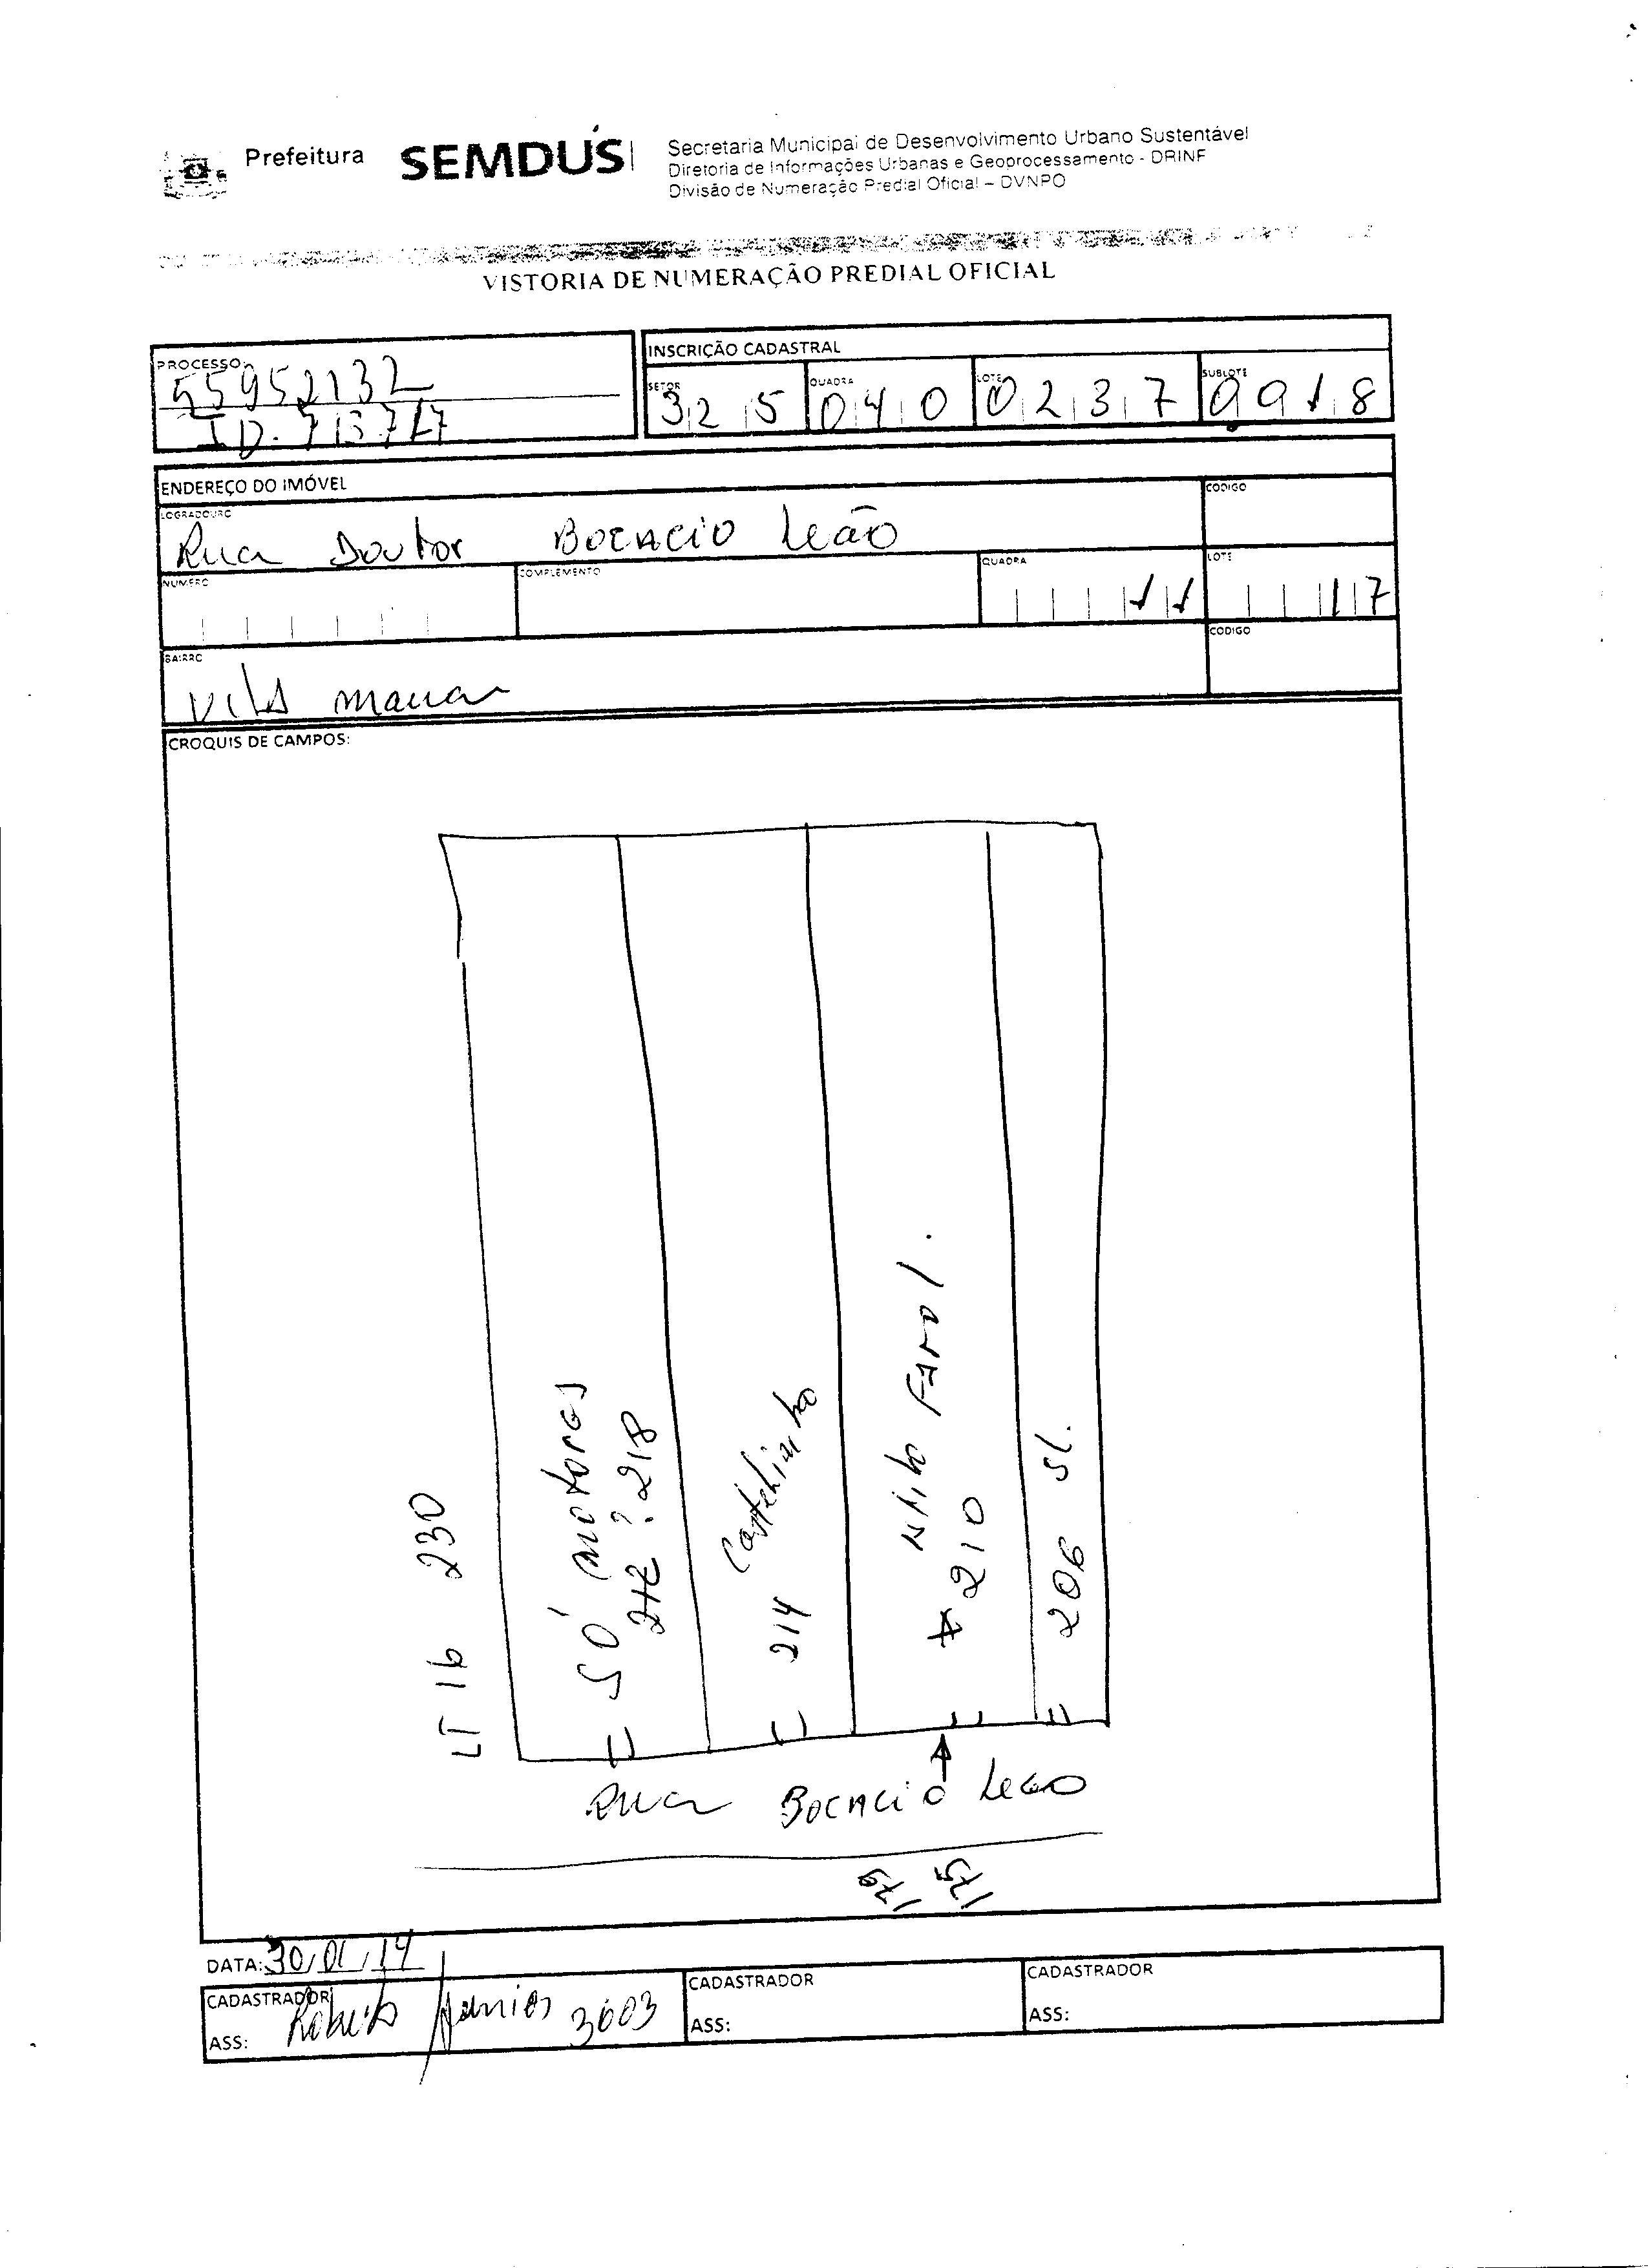 Prefeitura SEMDUS
Secretaria Municipal de Desenvolvimento Urbano Sustentável
Diretoria de Informações Urbanas e Geoprocessamento - DRINF
Divisão de Numeração Predial Oficial – DVNPO
VISTORIA DE NUMERAÇÃO PREDIAL OFICIAL
PROCESSO:
55952132
INSCRIÇÃO CADASTRAL
SETOR QUADRA LOTE SUBLOTE
325 040 0237 0018
ENDEREÇO DO IMÓVEL
LOGRADOURO CODIGO
Rua Doutor Bocacio Leão
NUMERO COMPLEMENTO QUADRA LOTE
11 17
BAIRRO CODIGO
Vila maua
CROQUIS DE CAMPOS:
LT 16 230
SÓ motores
212 ? 218
214 Castelinho
Farol.
210
206 sl.
Rua Bocacio Leão
179 175
DATA: 30/01/14
CADASTRADOR CADASTRADOR CADASTRADOR
ASS: Roberto 3003 ASS: ASS: